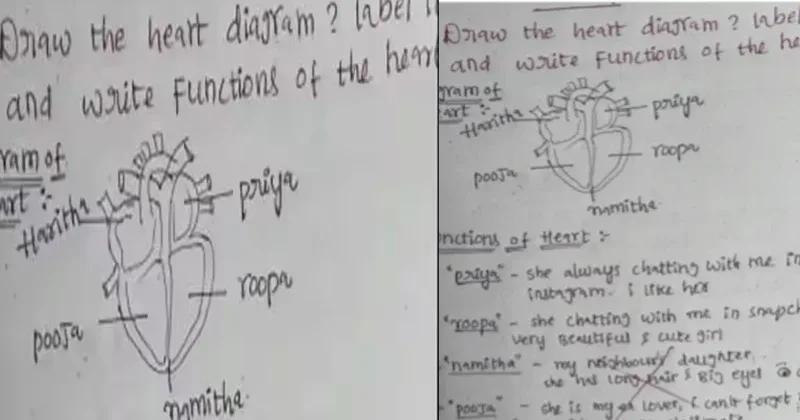 Draw the heart diagram? label
and write Functions of the
ram of
art :-
Haritha
priya
roopa
pooja
namitha
Draw the heart diagram? label
and write Functions of the
gram of
art :-
Haritha
priya
roopa
pooja
namitha
nctions of Heart :-
"priya" - she always chatting with me in
instagram. i like her
"roopa" - she chatting with me in snapch
very Beautiful & cute girl
"namitha" - my neighbours daughter.
she has long hair & Big eyes
"pooja" - she is my lover, i can't forget